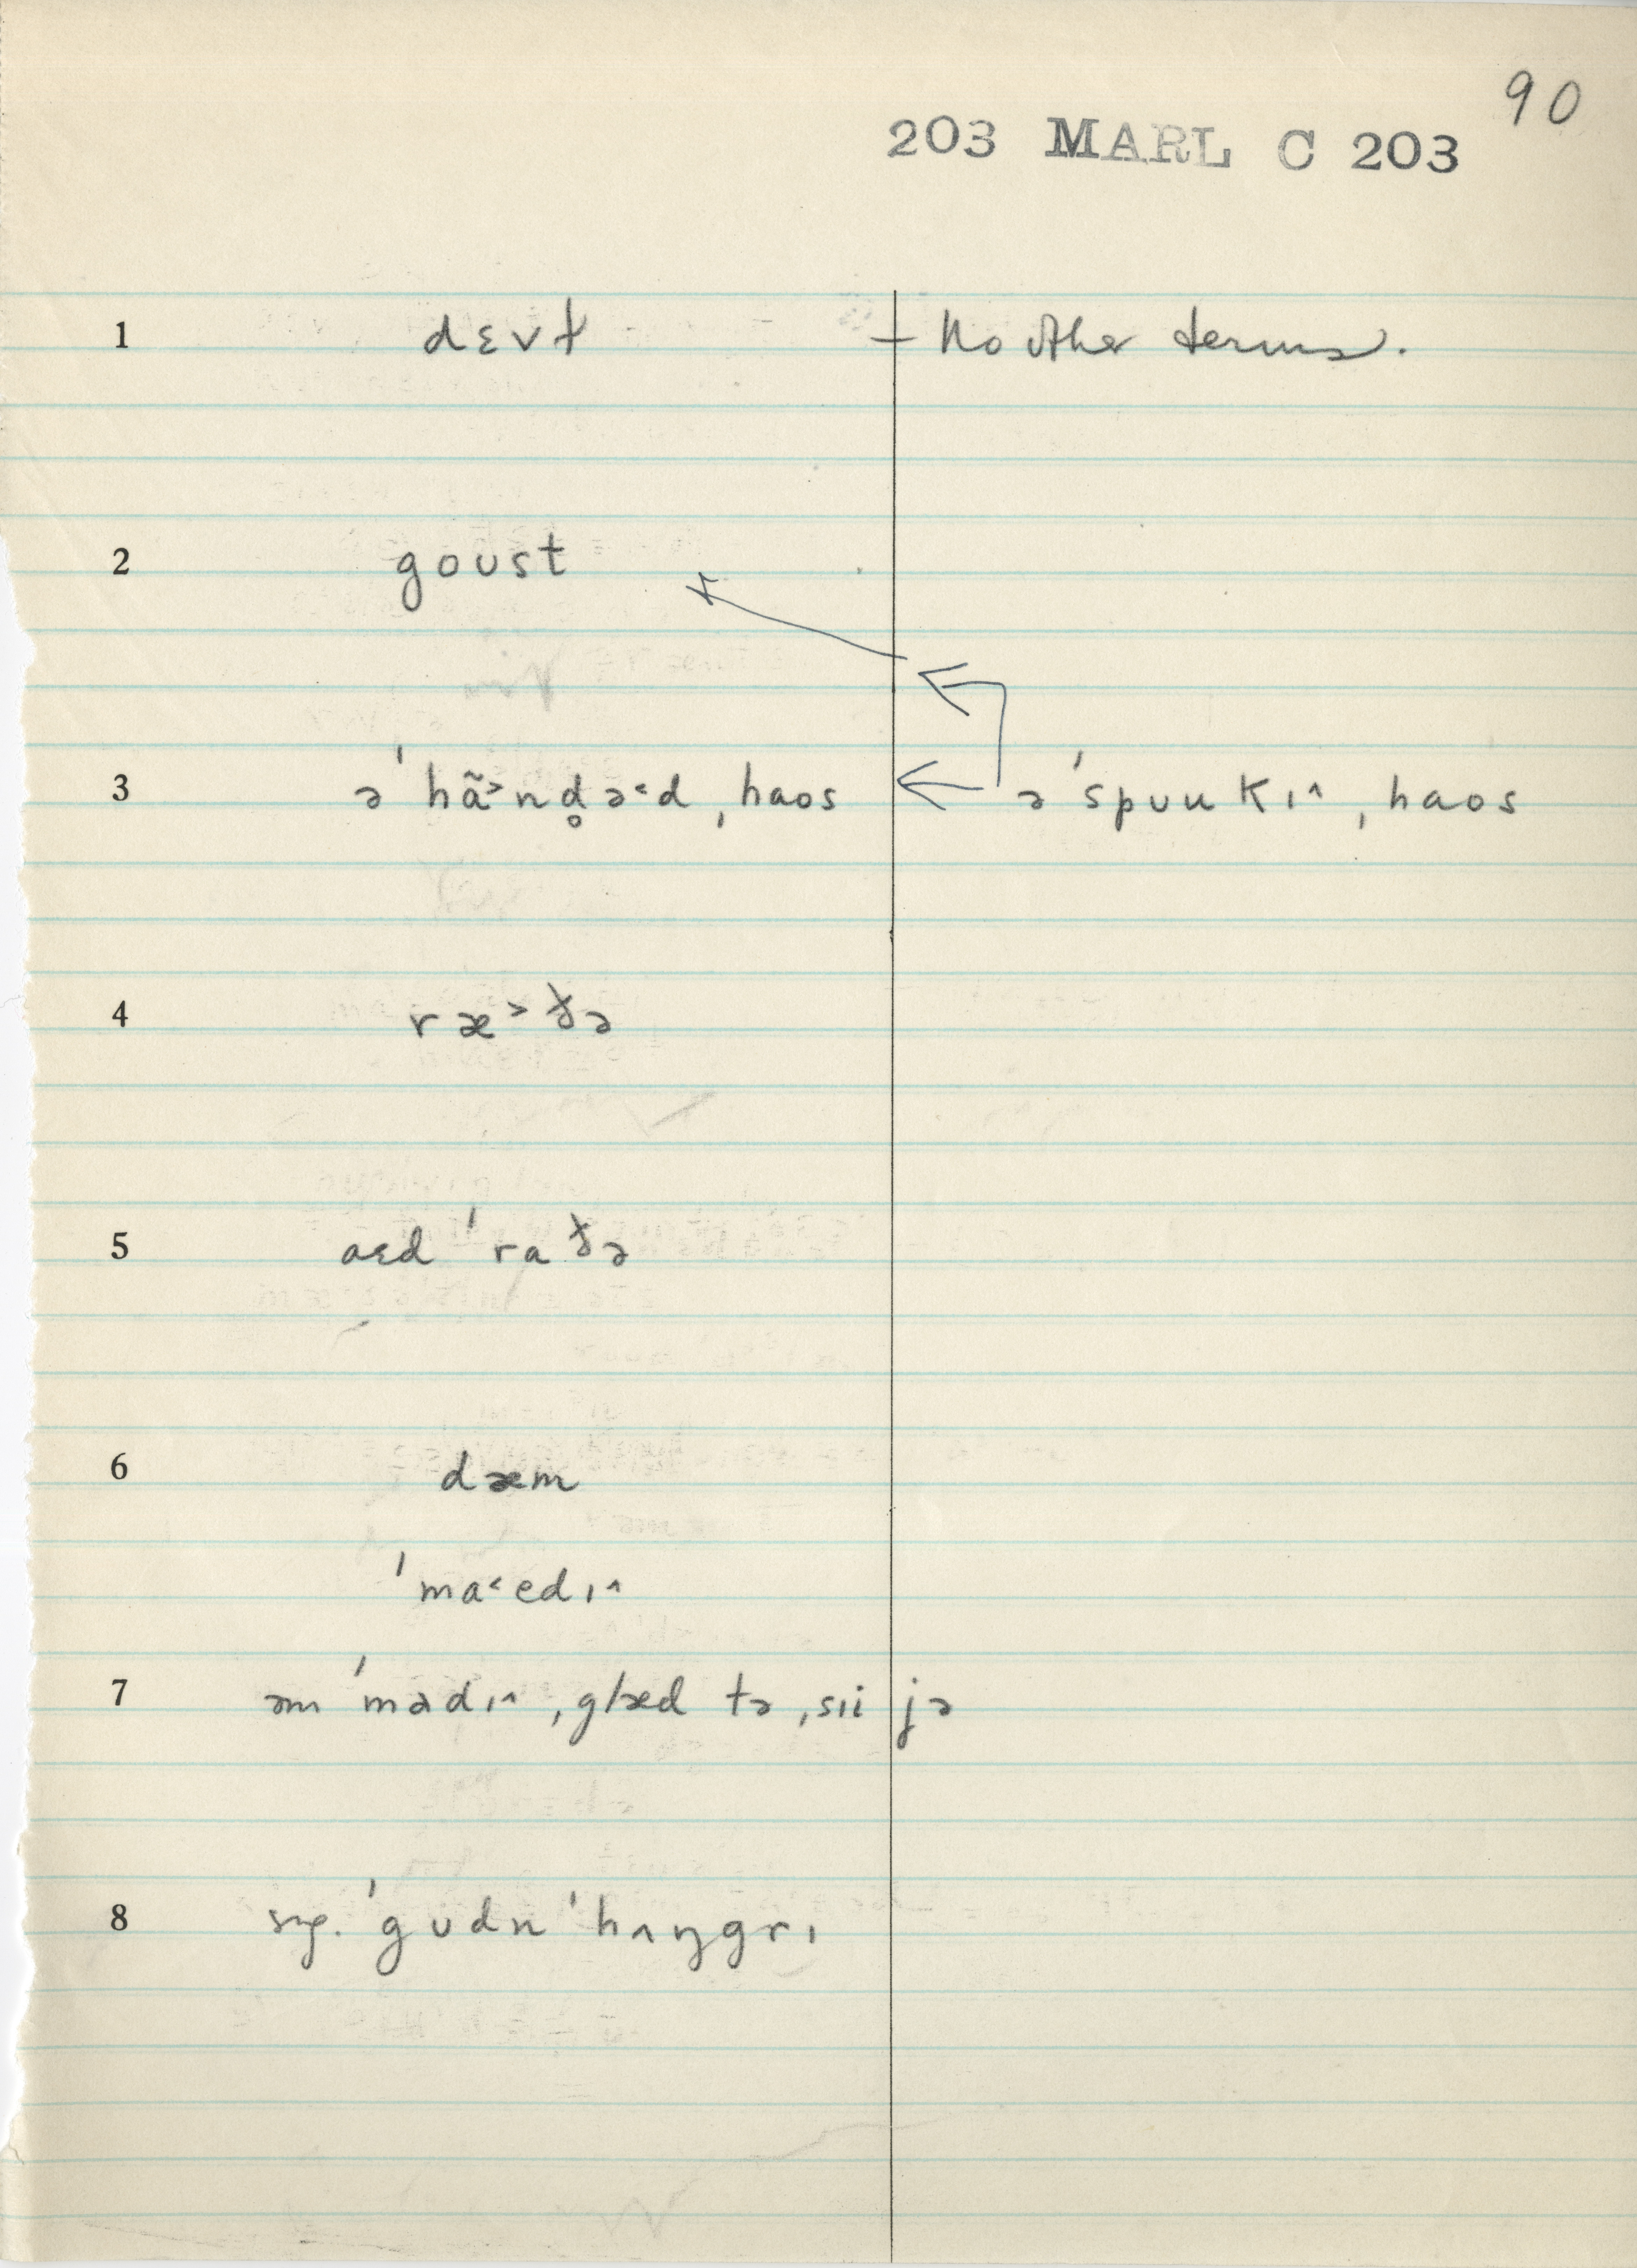 90
203 MARL C 203
1 dɛvɫ – No other terms.
2 goust
3 ə ˈhã˃nd̥ə˂d ˌhaos ə ˈspʊukɪ˄ ˌhaos
4 ræ˃ðə
5 aɛd ˈraðə
6 dæm
ˈma˂edɪ˄
7 əm ˈmadɪ˄ ˌglæd tə ˌsɪi jə
8 ˈgʊdn ˈhʌŋgrɪ